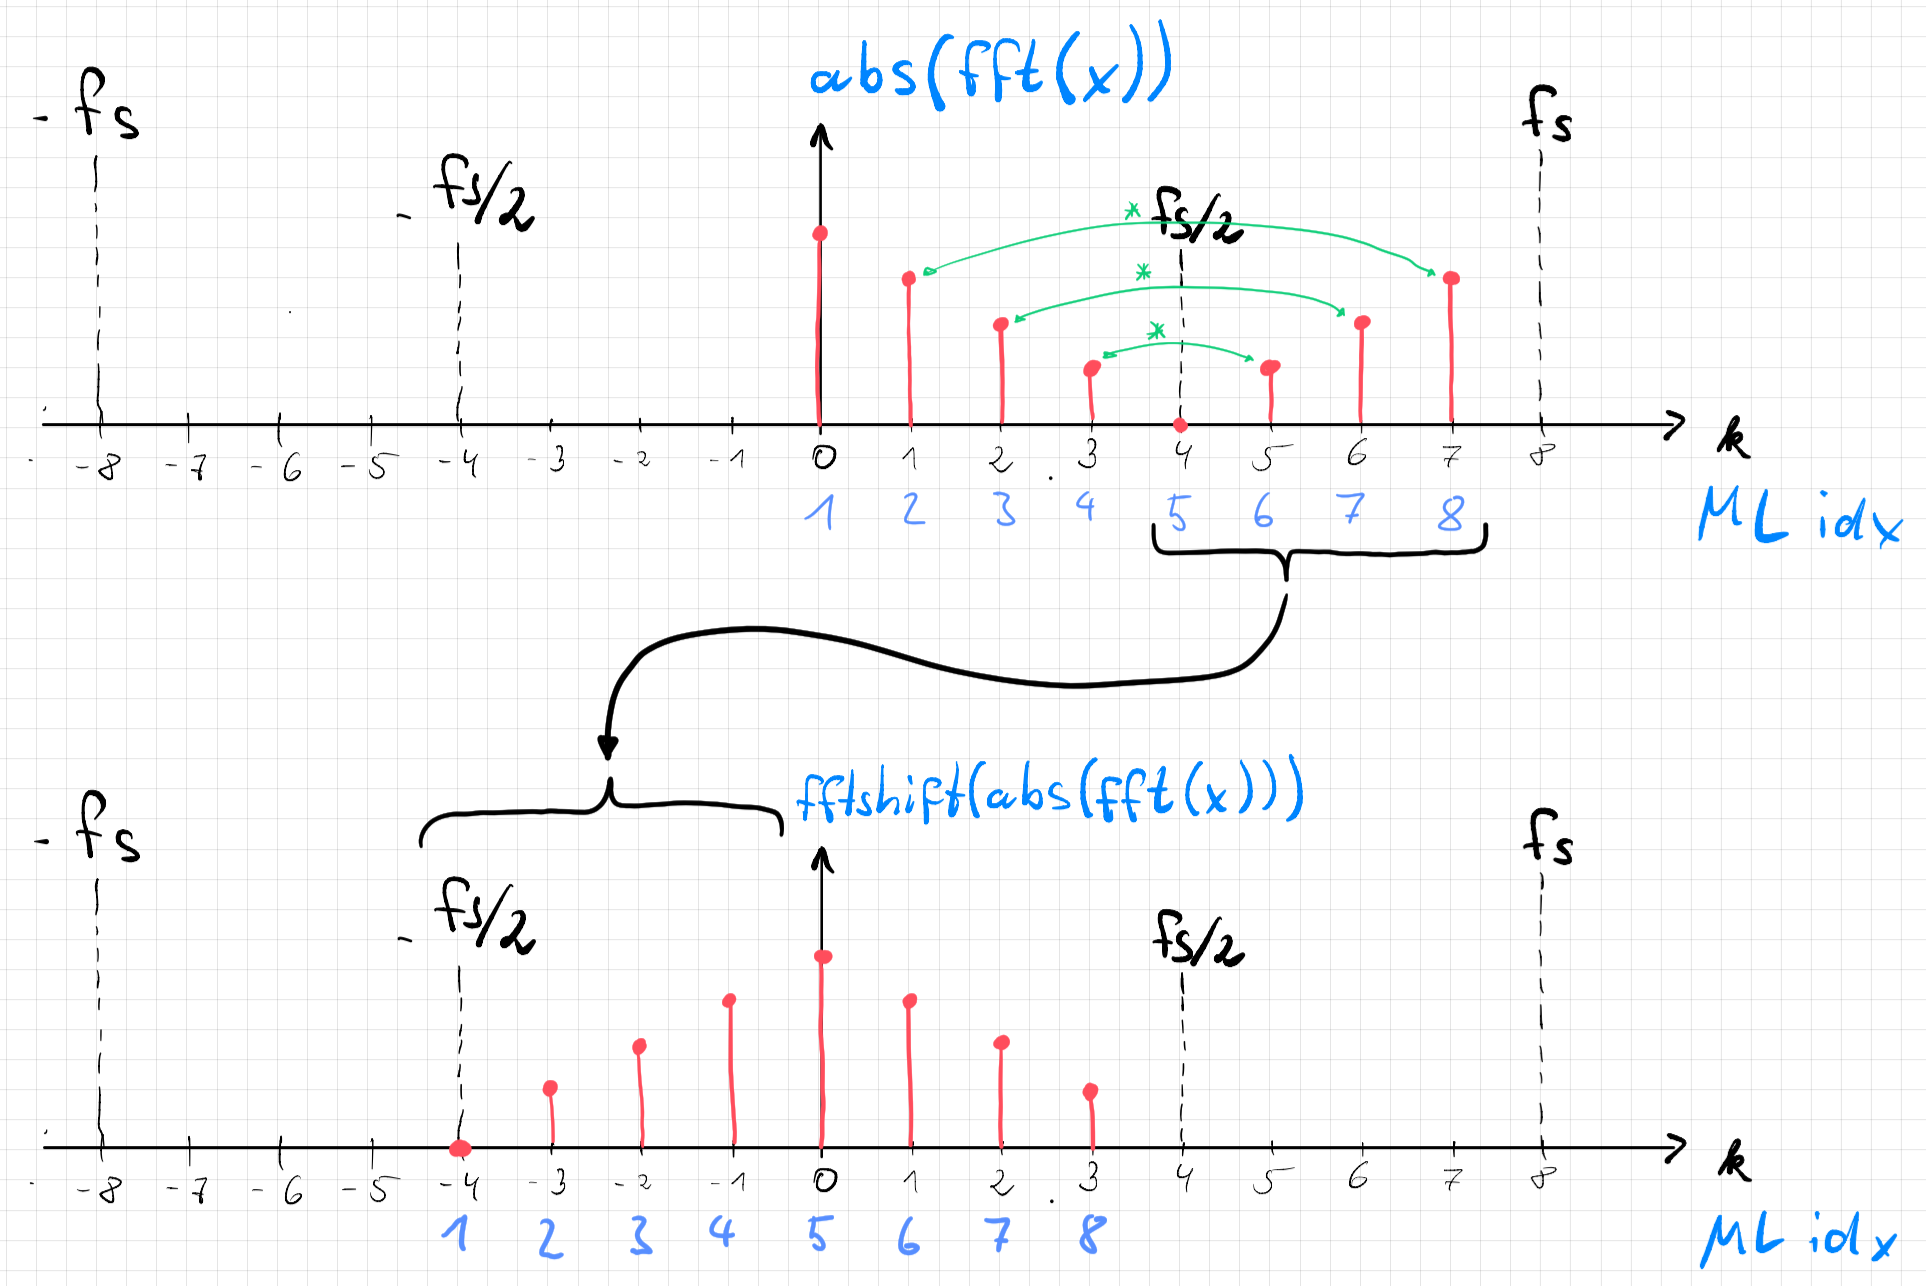 abs(fft(x))
- fs
fs
- fs/2
* fs/2
*
*
-8 -7 -6 -5 -4 -3 -2 -1 0 1 2 3 4 5 6 7 8 k
1 2 3 4 5 6 7 8 ML idx
fftshift(abs(fft(x)))
- fs
fs
- fs/2
fs/2
-8 -7 -6 -5 -4 -3 -2 -1 0 1 2 3 4 5 6 7 8 k
1 2 3 4 5 6 7 8 ML idx